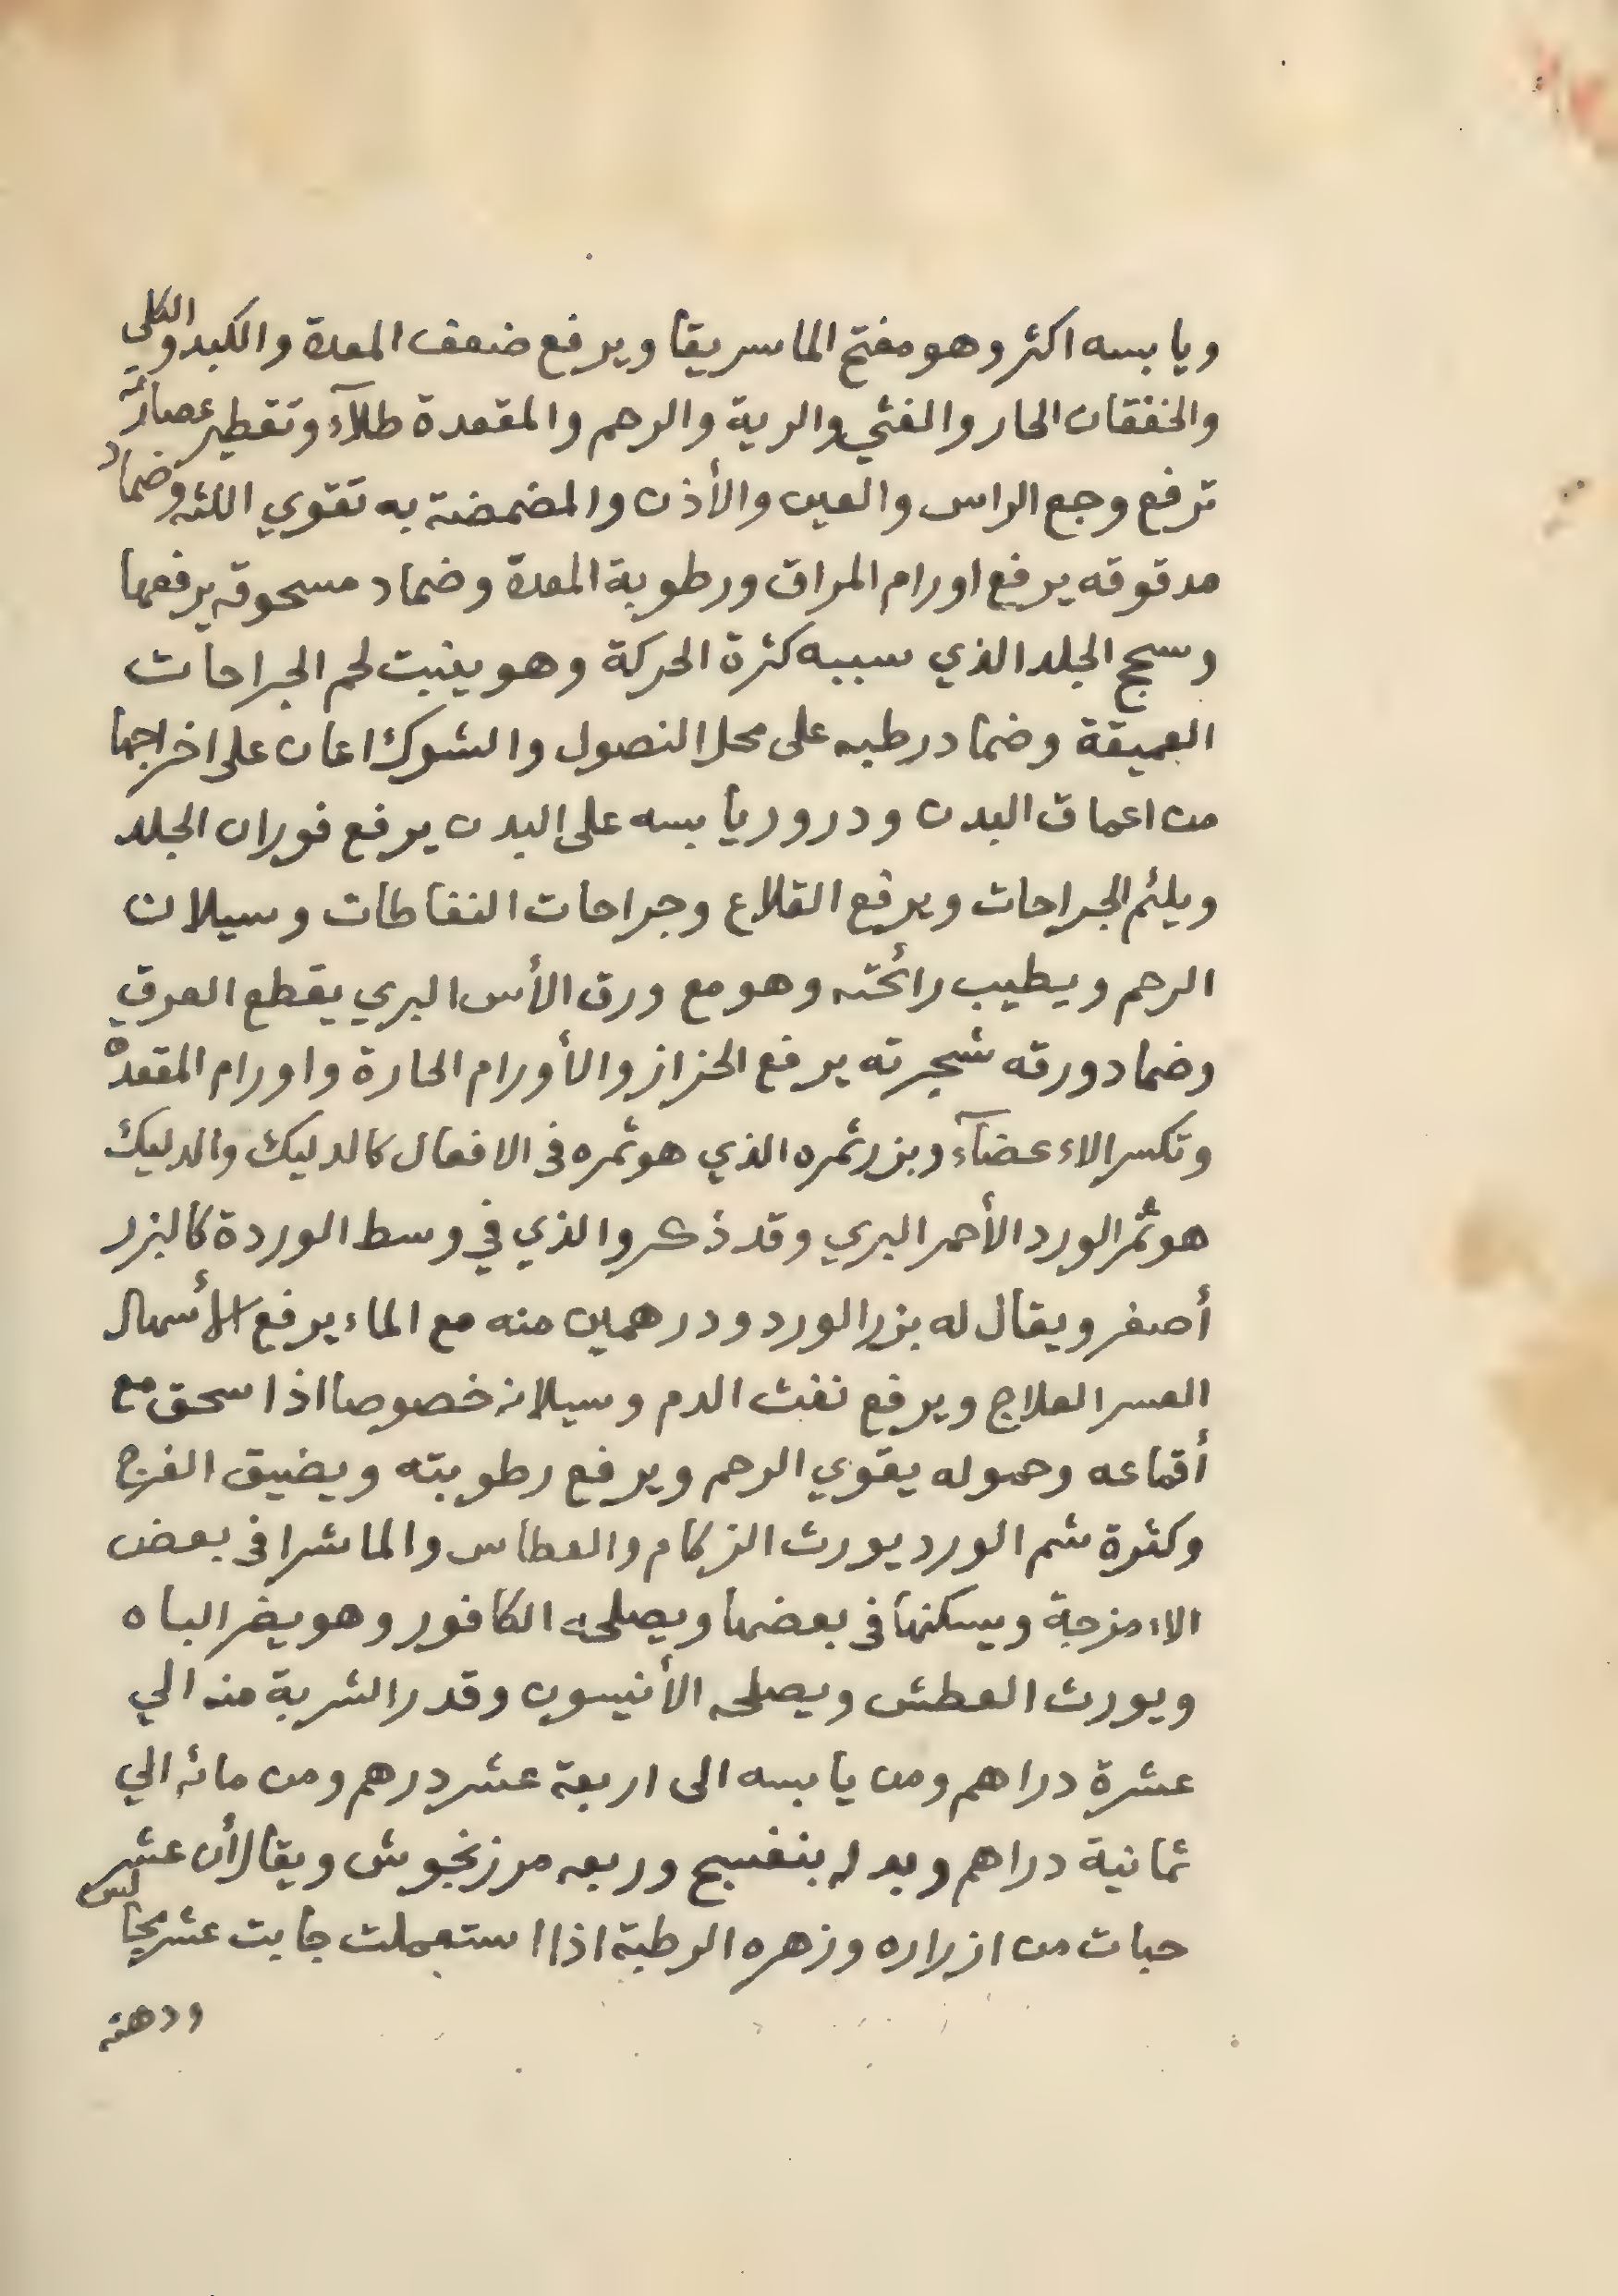 ويابسه اكثر وهو مفتح الماسريقا ويرفع ضعف المعدة والكبد والكلي
والخفقان الحار والغثي والرية والرحم والمقعدة طلآء وتقطير عصارته
ترفع وجع الراس والعين والأذن والمضمضة به تقوي اللثه وضماد
مدقوقه يرفع اورام المراق ورطوبة المعدة وضماد مسحوقه يرفعها
وسحج الجلد الذي سببه كثرة الحركة وهو ينبت لحم الجراحات
العميقة وضماد رطبه على محل النصول والشوك اعان على اخراجها
من اعماق البدن ودرور يابسه على البدن يرفع فوران الجلد
ويلئم الجراحات ويرفع القلاع وجراحات النفاطات وسيلان
الرحم ويطيب رائحته وهو مع ورق الأس البري يقطع العرق
وضماد ورقه شجرته يرفع الحزاز والأورام الحارة واورام المقعدة
وتكسر الاءعضآء وبزر ثمره الذي هو ثمره في الافعال كالدليك والدليك
هو ثمر الورد الأحمر البري وقد ذكروا الذي في وسط الوردة كالبزر
أصفر ويقال له بزر الورد ودرهمين منه مع الماء يرفع الأسهال
العسر العلاج ويرفع نفث الدم وسيلانه خصوصا اذا سحق مع
أقماعه وحموله يقوي الرحم ويرفع رطوبته ويضيق الفرج
وكثرة شم الورد يورث الزكام والعطاس والماشرا في بعض
الاءمزجة ويسكنها في بعضها ويصلحه الكافور وهو يضر الباه
ويورث العطش ويصلحه الأنيسون وقدر الشربة منه الي
عشرة دراهم ومن يابسه الى اربعة عشر درهم ومن مائه الي
ثمانية دراهم وبدله بنفسج وربعه مرزنجوش ويقال أن عشر
حبات من ازراره وزهره الرطبة اذا استعملت جابت عشر مجالس
ودهنه